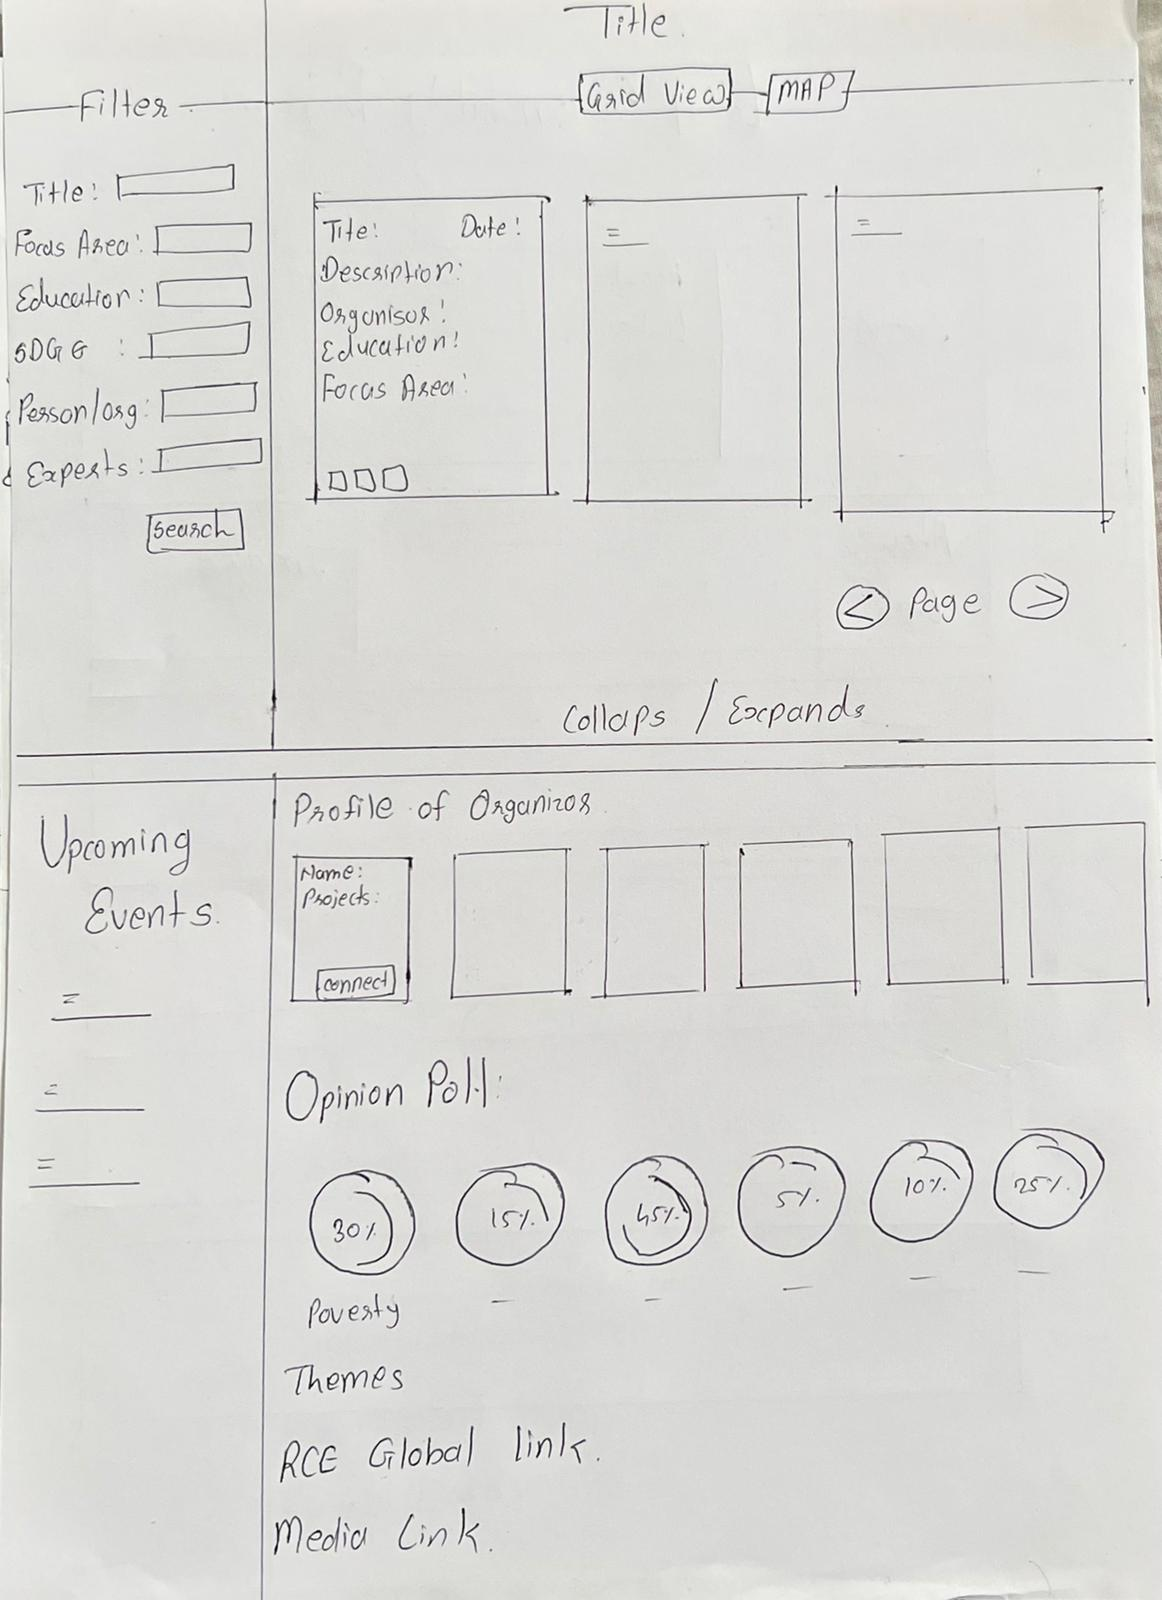 Title.
Filter
Grid View
MAP
Title:
Focus Area:
Education:
SDG G :
Person/org:
Experts:
Search
Tite: Date:
Description:
Organisor:
Education:
Focus Area:
=
=
< Page >
Collaps / Expands
Upcoming
Events.
=
=
=
Profile of Organizor
Name:
Projects:
connect
Opinion Poll:
30% 15% 45% 5% 10% 25%
Poverty
Themes
RCE Global link.
Media Link.